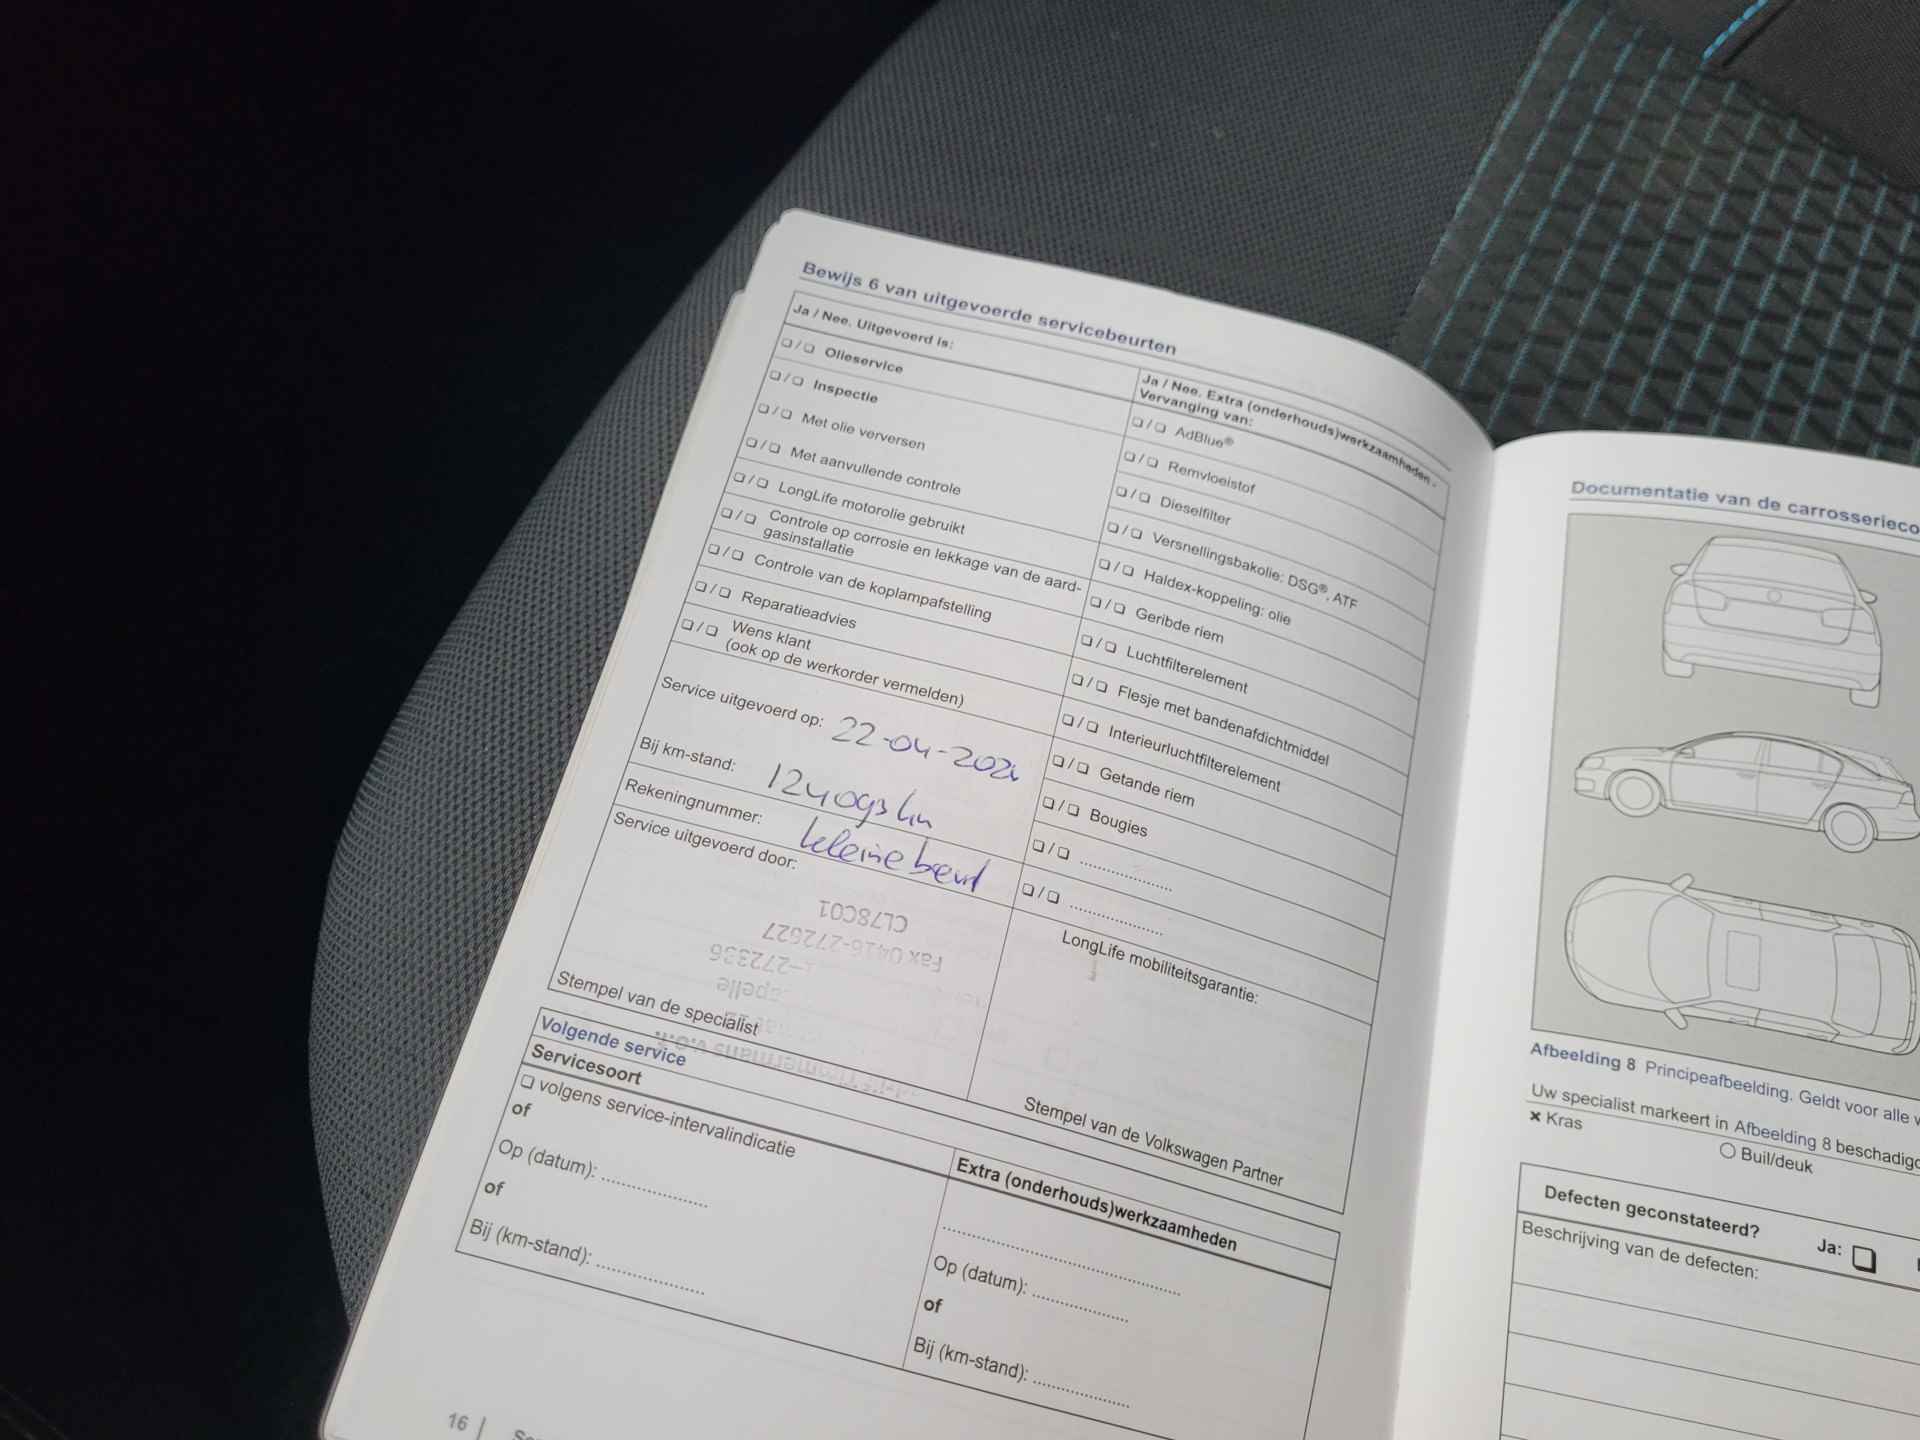 Bewijs 6 van uitgevoerde servicebeurten
Ja / Nee. Uitgevoerd is:
❏ / ❏ Olieservice
❏ / ❏ Inspectie
❏ / ❏ Met olie verversen
❏ / ❏ Met aanvullende controle
❏ / ❏ LongLife motorolie gebruikt
❏ / ❏ Controle op corrosie en lekkage van de aard-
gasinstallatie
❏ / ❏ Controle van de koplampafstelling
❏ / ❏ Reparatieadvies
❏ / ❏ Wens klant
(ook op de werkorder vermelden)
Service uitgevoerd op: 22-04-202
Bij km-stand: km
Rekeningnummer: kleine beurt
Service uitgevoerd door:
CL78C01
Fax 0416-272627
-272336
apelle
12
mermans v.o.f.
Stempel van de specialist
Ja / Nee. Extra (onderhouds)werkzaamheden -
Vervanging van:
❏ / ❏ AdBlue®
❏ / ❏ Remvloeistof
❏ / ❏ Dieselfilter
❏ / ❏ Versnellingsbakolie: DSG®, ATF
❏ / ❏ Haldex-koppeling: olie
❏ / ❏ Geribde riem
❏ / ❏ Luchtfilterelement
❏ / ❏ Flesje met bandenafdichtmiddel
❏ / ❏ Interieurluchtfilterelement
❏ / ❏ Getande riem
❏ / ❏ Bougies
❏ / ❏ ....................
❏ / ❏ ....................
LongLife mobiliteitsgarantie:
Stempel van de Volkswagen Partner
Volgende service
Servicesoort
❏ volgens service-intervalindicatie
of
Op (datum): ....................
of
Bij (km-stand): ....................
Extra (onderhouds)werkzaamheden
............................................
Op (datum): ....................
of
Bij (km-stand): ....................
16
Documentatie van de carrosserieco
Afbeelding 8 Principeafbeelding. Geldt voor alle
Uw specialist markeert in Afbeelding 8 beschadig
✖ Kras
○ Buil/deuk
Defecten geconstateerd?
Ja: ❏
Beschrijving van de defecten: